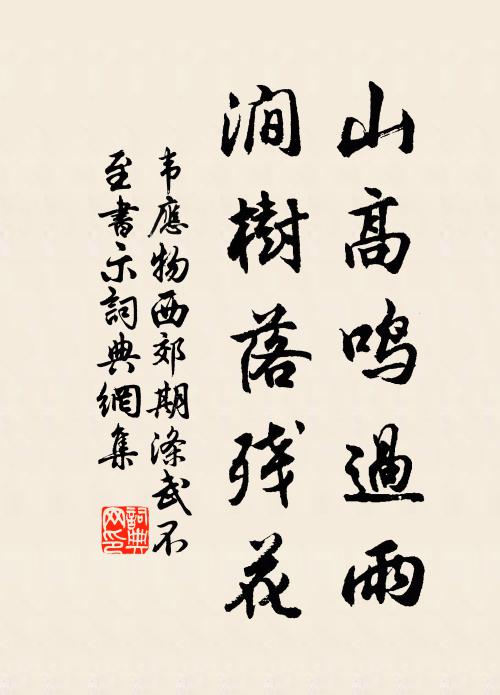 山高鸣過雨
澗樹落残花
韦應物西郊期滌武不
至書示詞典網集
詞典网印